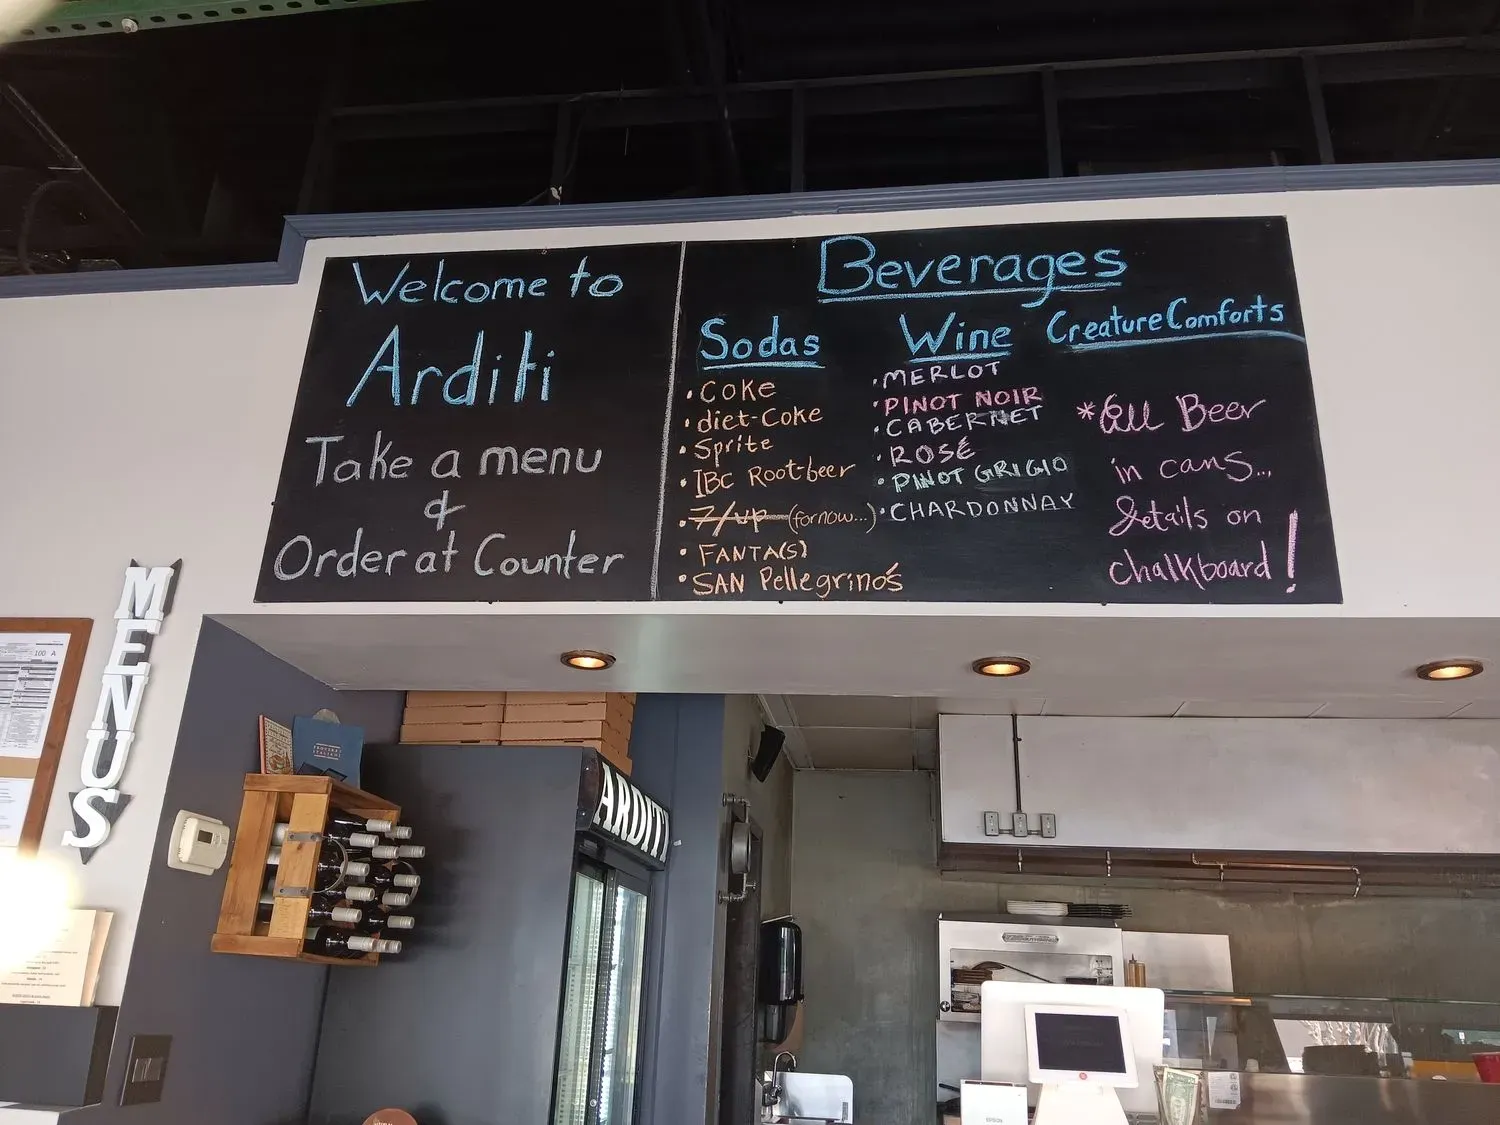 Welcome to
Arditi
Take a menu
&
Order at Counter
Beverages
Sodas
• Coke
• diet-Coke
• Sprite
• IBC Root-beer
• 7/up (for now...)
• FANTA(S)
• SAN Pellegrino's
Wine
• MERLOT
• PINOT NOIR
• CABERNET
• ROSÉ
• PINOT GRIGIO
• CHARDONNAY
Creature Comforts
*All Beer
in cans...
details on
chalkboard!
MENUS
100 A
ARDITI
EPSON